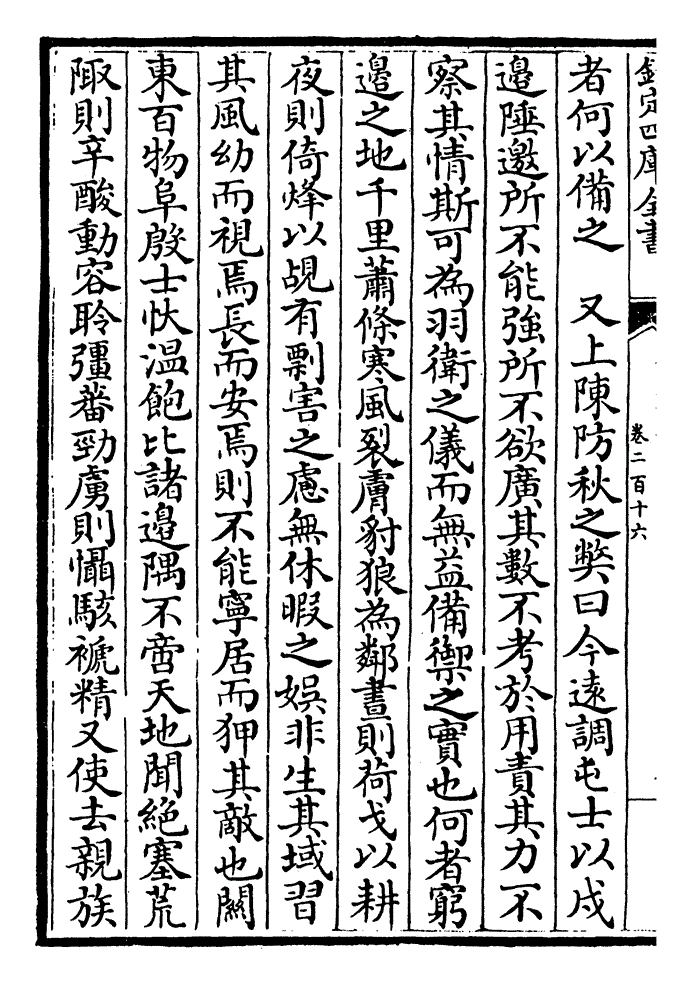 欽定四庫全書
卷二百十六
者何以備之　又上陳防秋之弊曰今遠調屯士以戍
邊陲邀所不能強所不欲廣其數不考於用責其力不
察其情斯可為羽衛之儀而無益備禦之實也何者窮
邊之地千里蕭條寒風裂膚豺狼為鄰晝則荷戈以耕
夜則倚烽以覘有剽害之慮無休暇之娛非生其域習
其風幼而視焉長而安焉則不能寧居而狎其敵也關
東百物阜殷士忕温飽比諸邊隅不啻天地聞絶塞荒
陬則辛酸動容聆彊蕃勁虜則懾駭褫精又使去親族